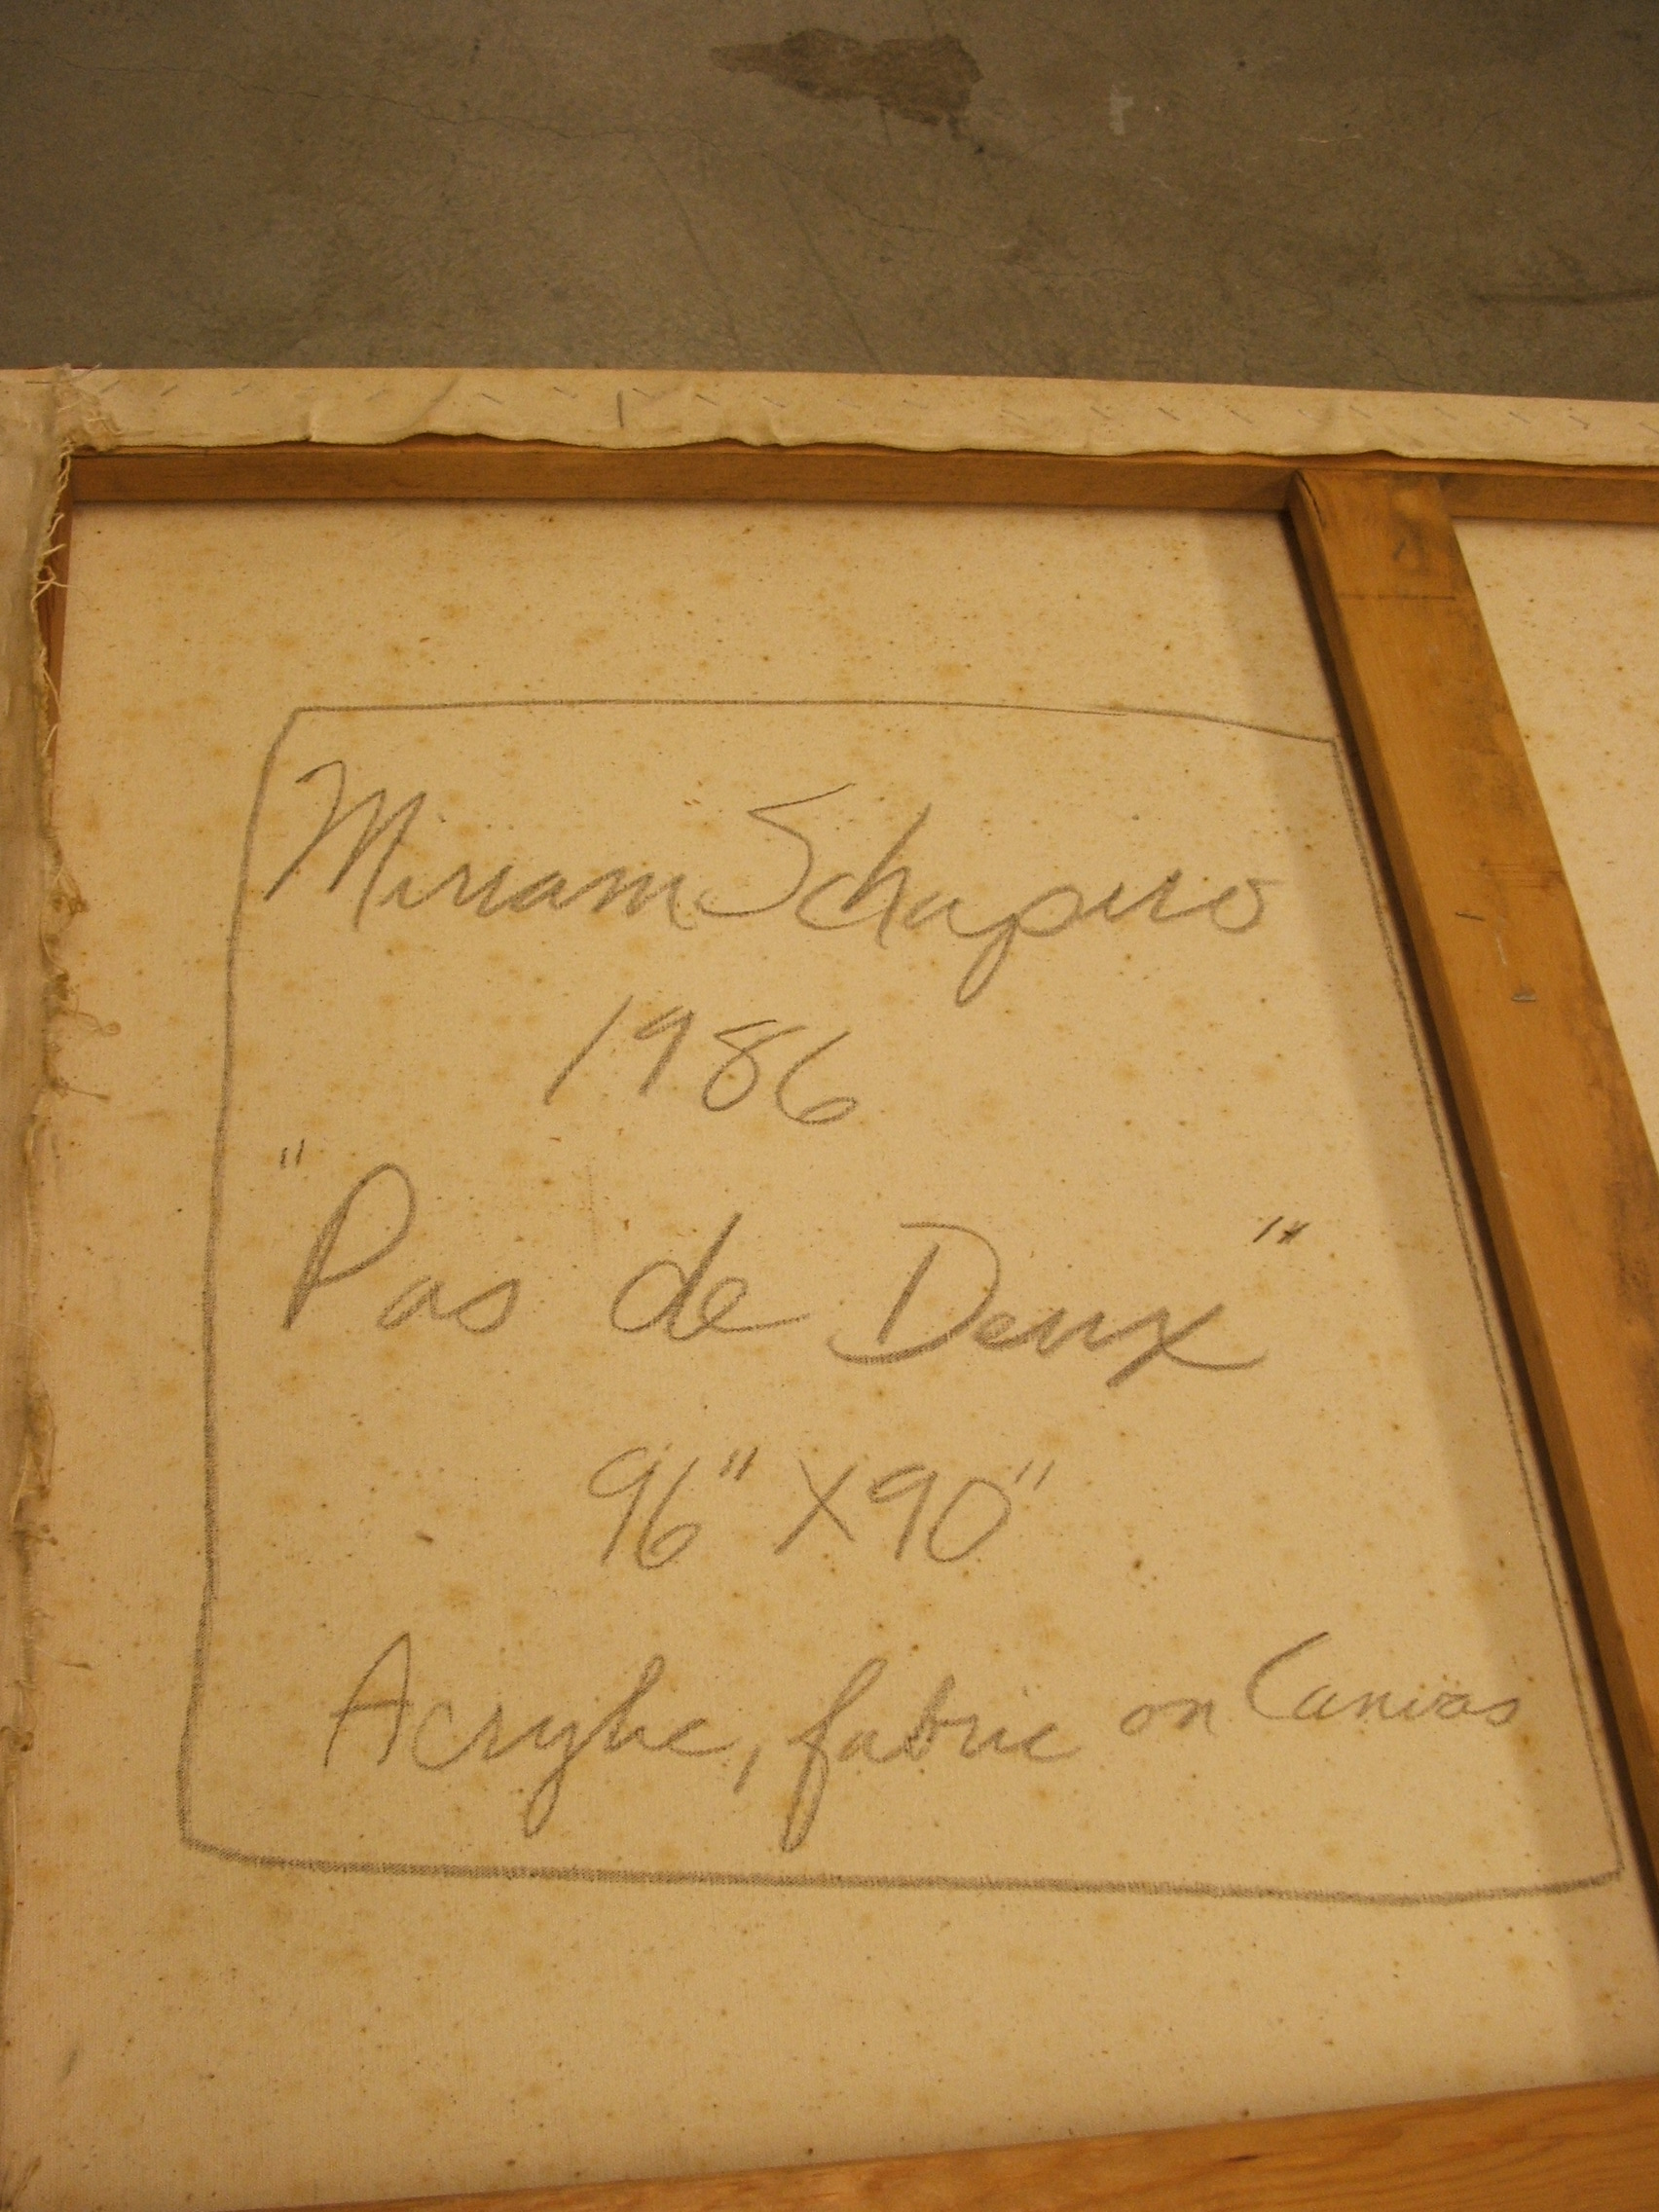 Miriam Schapiro
1986
"Pas de Deux"
96" X 90"
Acrylic, fabric on Canvas